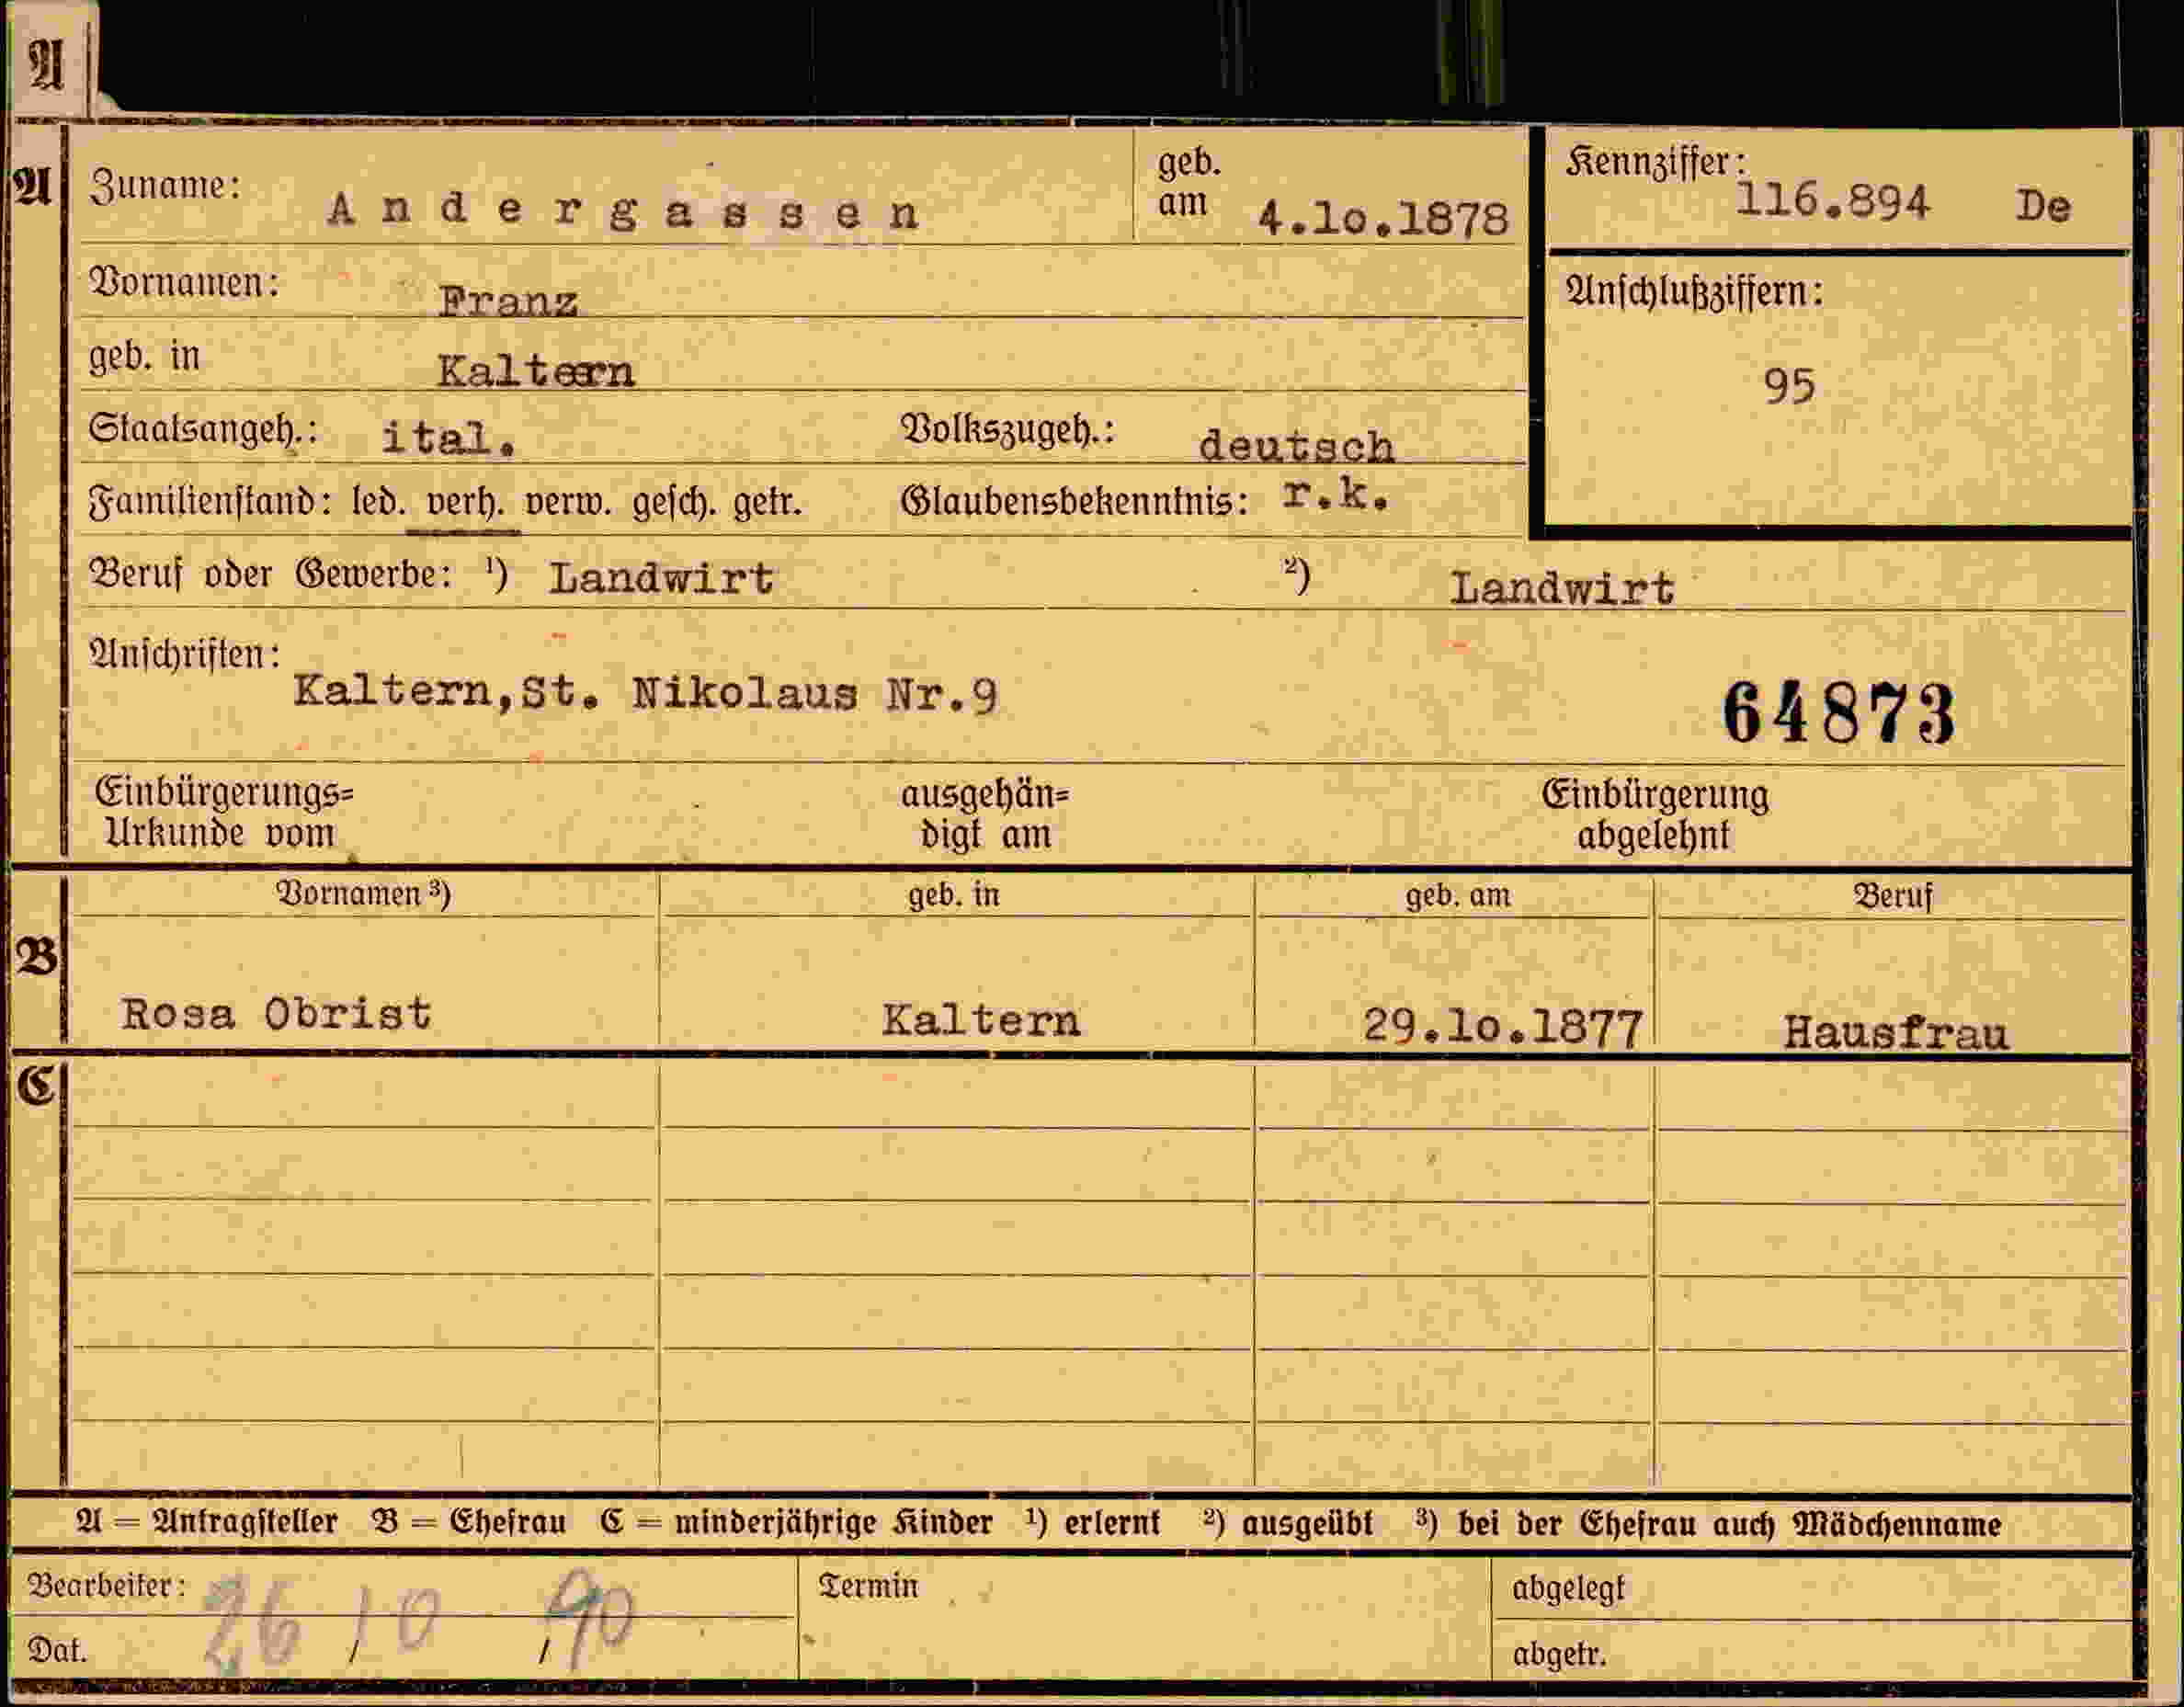 A
A
Zuname: Andergassen geb. am 4.lo.1878
Kennziffer: 116.894 De
Vornamen: Franz
Anschlußziffern:
95
geb. in Kaltern
Staatsangeh.: ital. Volkszugeh.: deutsch
Familienstand: led. verh. verw. gesch. getr. Glaubensbekenntnis: r.k.
Beruf oder Gewerbe: ¹) Landwirt ²) Landwirt
Anschriften: Kaltern,St. Nikolaus Nr.9
64873
Einbürgerungs=
Urkunde vom
ausgehän=
digt am
Einbürgerung
abgelehnt
B
Vornamen ³) geb. in geb. am Beruf
Rosa Obrist Kaltern 29.lo.1877 Hausfrau
C
A = Antragsteller B = Ehefrau C = minderjährige Kinder ¹) erlernt ²) ausgeübt ³) bei der Ehefrau auch Mädchenname
Bearbeiter: Termin abgelegt
26/10/90
Dat. abgetr.